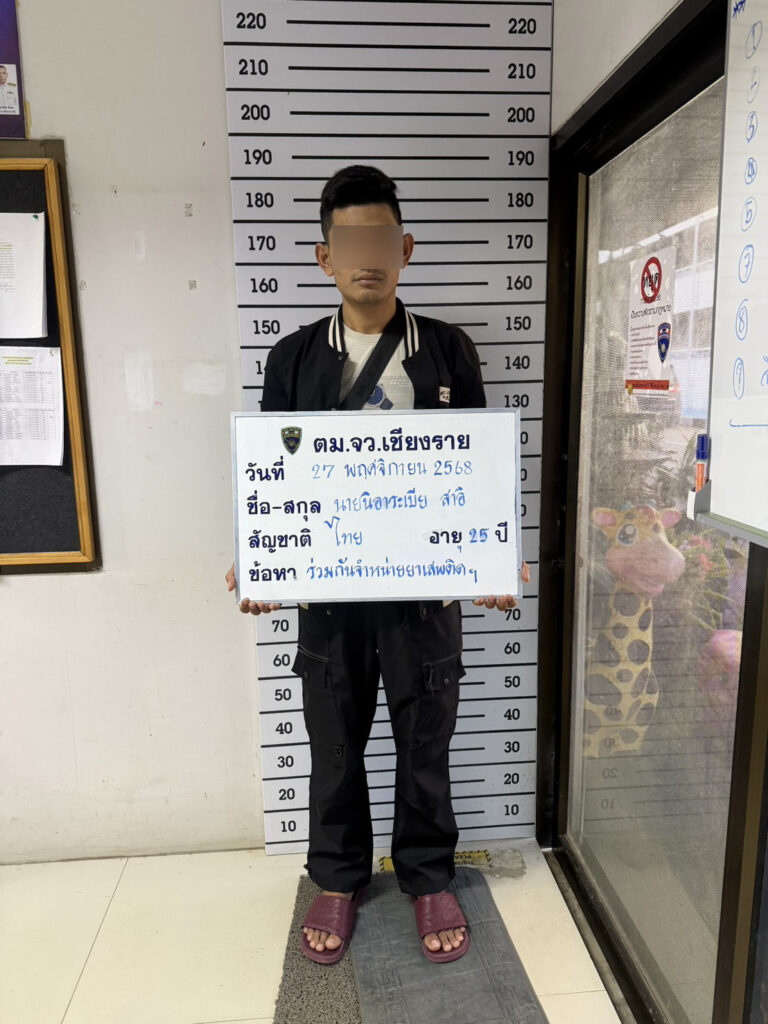 ตม.จว.เชียงราย
วันที่ 27 พฤศจิกายน 2568
ชื่อ-สกุล นายนิอาระเบีย สาอิ
สัญชาติ ไทย อายุ 25 ปี
ข้อหา ร่วมกันจำหน่ายยาเสพติดฯ
220 220
210 210
200 200
190 190
180 180
170 170
160 160
150 150
140 140
130
70 70
60 60
50 50
40 40
30 30
20 20
10 10
หยุด